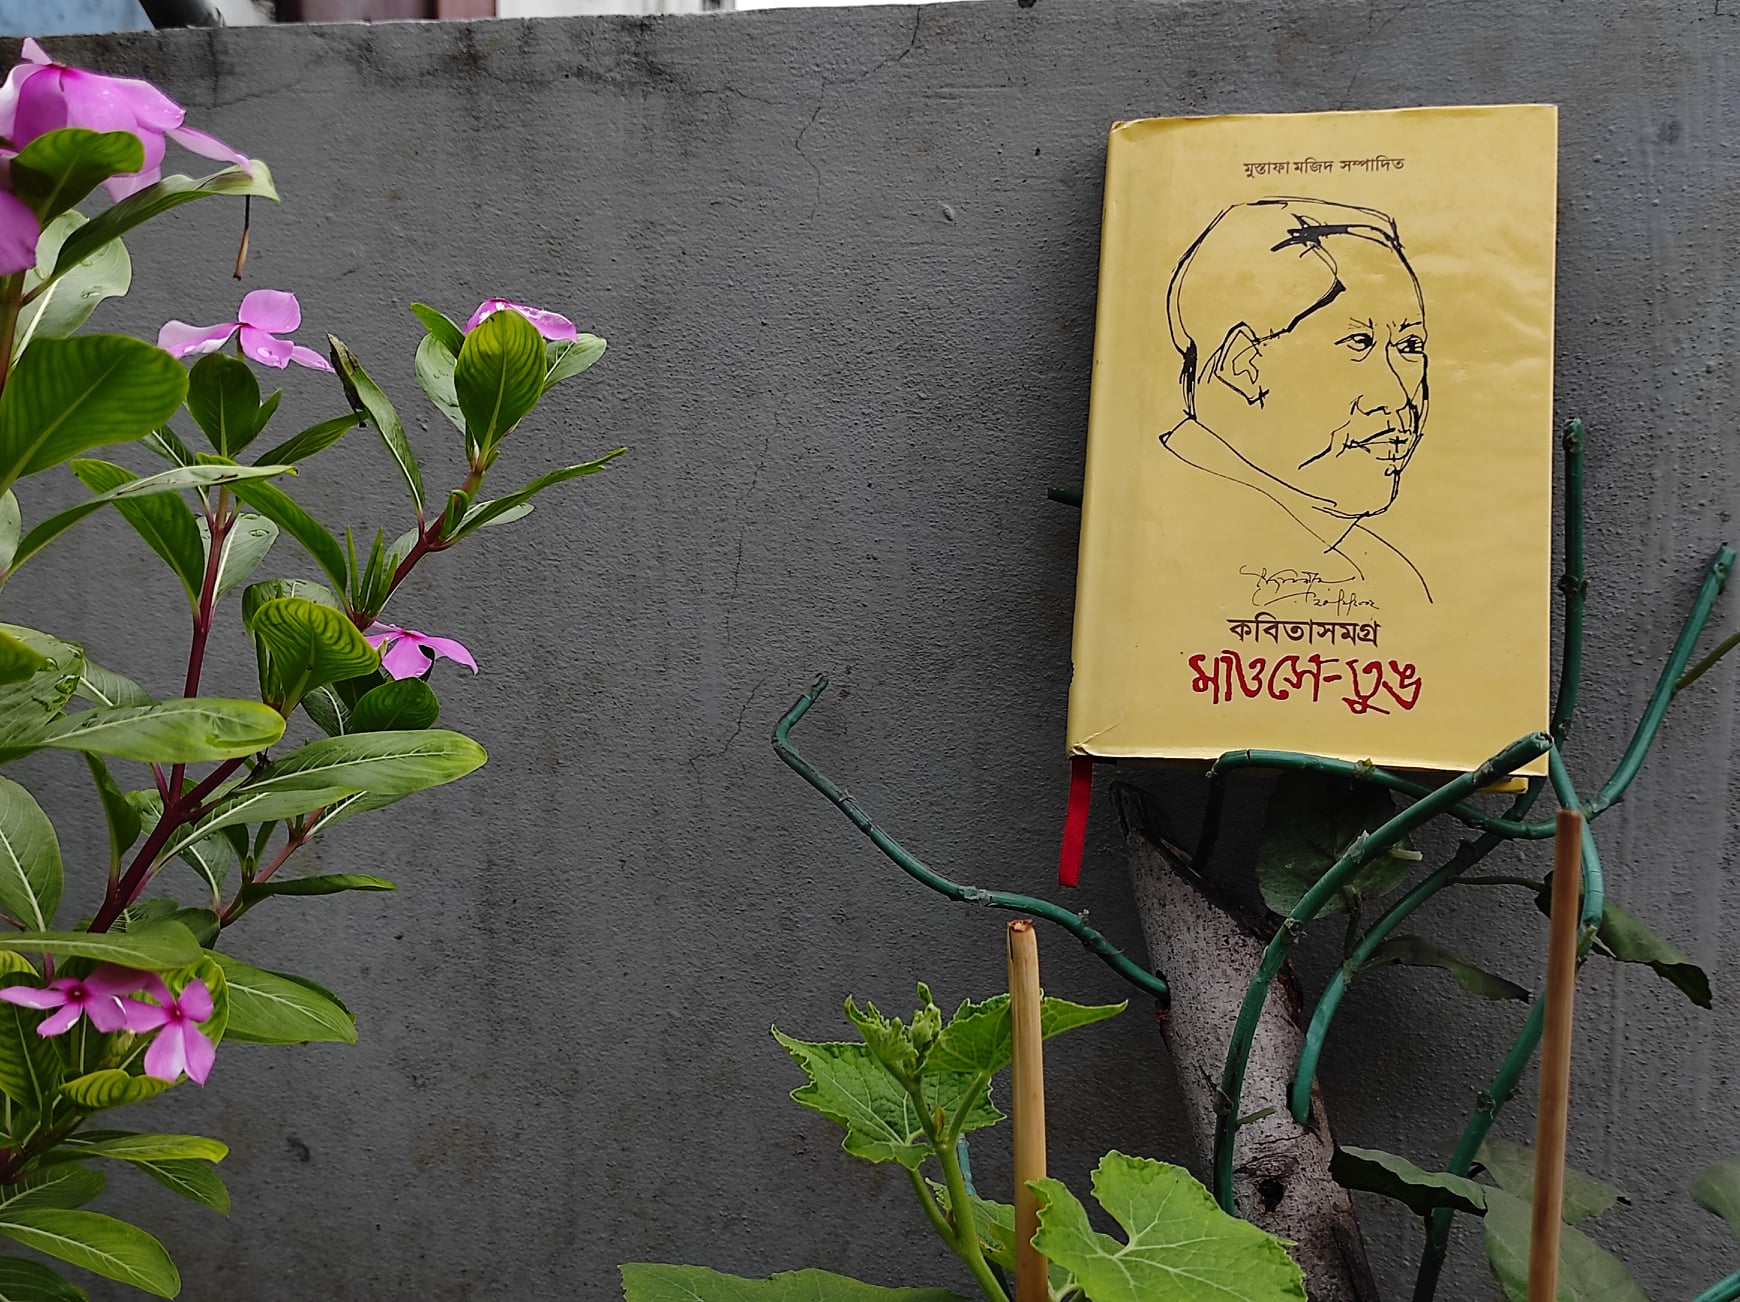 মুস্তাফা মজিদ সম্পাদিত
কবিতাসমগ্র
মাওসে-তুঙ